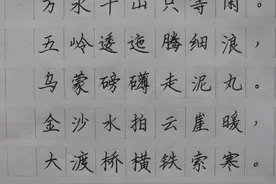 万水千山只等闲。
五岭逶迤腾细浪，
乌蒙磅礴走泥丸。
金沙水拍云崖暖，
大渡桥横铁索寒。